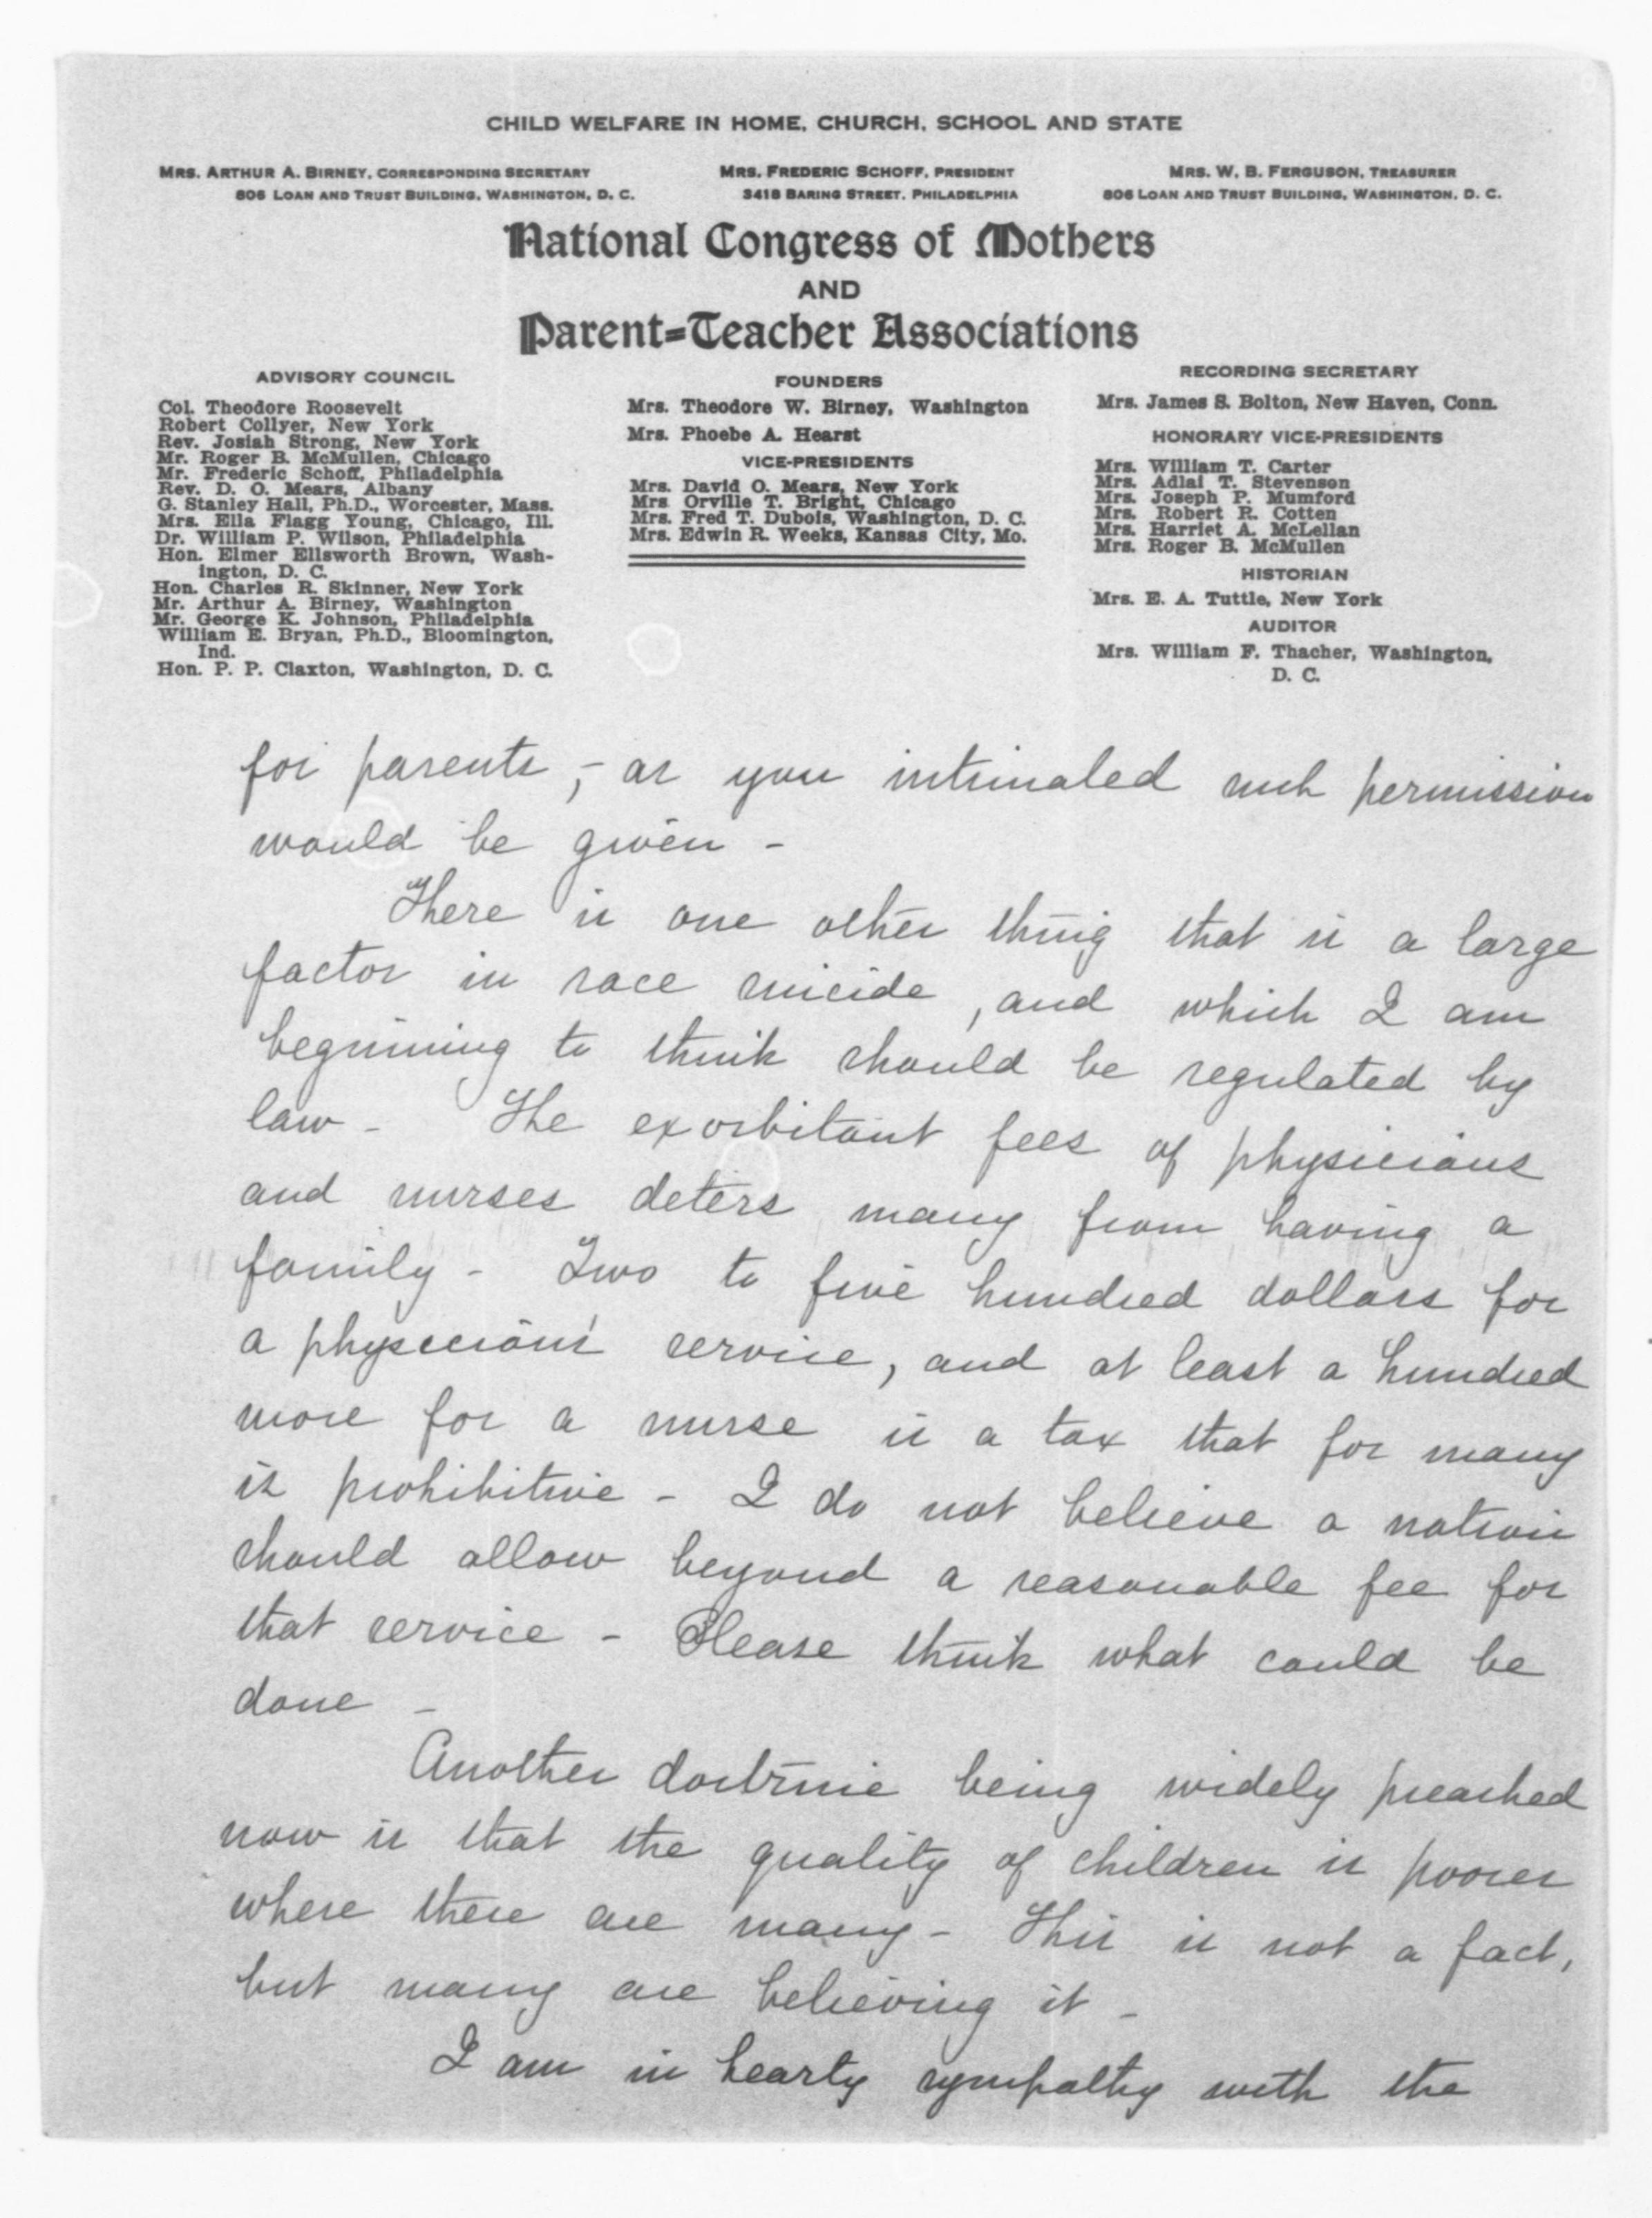 CHILD WELFARE IN HOME, CHURCH, SCHOOL AND STATE
MRS. ARTHUR A. BIRNEY, CORRESPONDING SECRETARY
806 LOAN AND TRUST BUILDING, WASHINGTON, D. C.
MRS. FREDERIC SCHOFF, PRESIDENT
3418 BARING STREET, PHILADELPHIA
MRS. W. B. FERGUSON, TREASURER
806 LOAN AND TRUST BUILDING, WASHINGTON, D. C.
National Congress of Mothers
AND
Parent-Teacher Associations
ADVISORY COUNCIL
Col. Theodore Roosevelt
Robert Collyer, New York
Rev. Josiah Strong, New York
Mr. Roger B. McMullen, Chicago
Mr. Frederic Schoff, Philadelphia
Rev. D. O. Mears, Albany
G. Stanley Hall, Ph.D., Worcester, Mass.
Mrs. Ella Flagg Young, Chicago, Ill.
Dr. William P. Wilson, Philadelphia
Hon. Elmer Ellsworth Brown, Wash-
ington, D. C.
Hon. Charles R. Skinner, New York
Mr. Arthur A. Birney, Washington
Mr. George K. Johnson, Philadelphia
William E. Bryan, Ph.D., Bloomington,
Ind.
Hon. P. P. Claxton, Washington, D. C.
FOUNDERS
Mrs. Theodore W. Birney, Washington
Mrs. Phoebe A. Hearst
VICE-PRESIDENTS
Mrs. David O. Mears, New York
Mrs Orville T. Bright, Chicago
Mrs. Fred T. Dubois, Washington, D. C.
Mrs. Edwin R. Weeks, Kansas City, Mo.
RECORDING SECRETARY
Mrs. James S. Bolton, New Haven, Conn.
HONORARY VICE-PRESIDENTS
Mrs. William T. Carter
Mrs. Adlai T. Stevenson
Mrs. Joseph P. Mumford
Mrs. Robert R. Cotten
Mrs. Harriet A. McLellan
Mrs. Roger B. McMullen
HISTORIAN
Mrs. E. A. Tuttle, New York
AUDITOR
Mrs. William F. Thacher, Washington,
D. C.
for parents, - as you intimated such permission
would be given -
There is one other thing that is a large
factor in race suicide, and which I am
beginning to think should be regulated by
law - The exorbitant fees of physicians
and nurses deters many from having a
family - Two to five hundred dollars for
a physician's service, and at least a hundred
more for a nurse is a tax that for many
is prohibitive - I do not believe a nation
should allow beyond a reasonable fee for
that service - Please think what could be
done -
Another doctrine being widely preached
now is that the quality of children is poorer
where there are many - This is not a fact,
but many are believing it -
I am in hearty sympathy with the